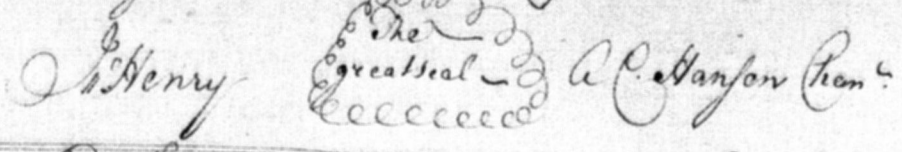 Jno Henry
The
great seal
A C. Hanson Chanr.